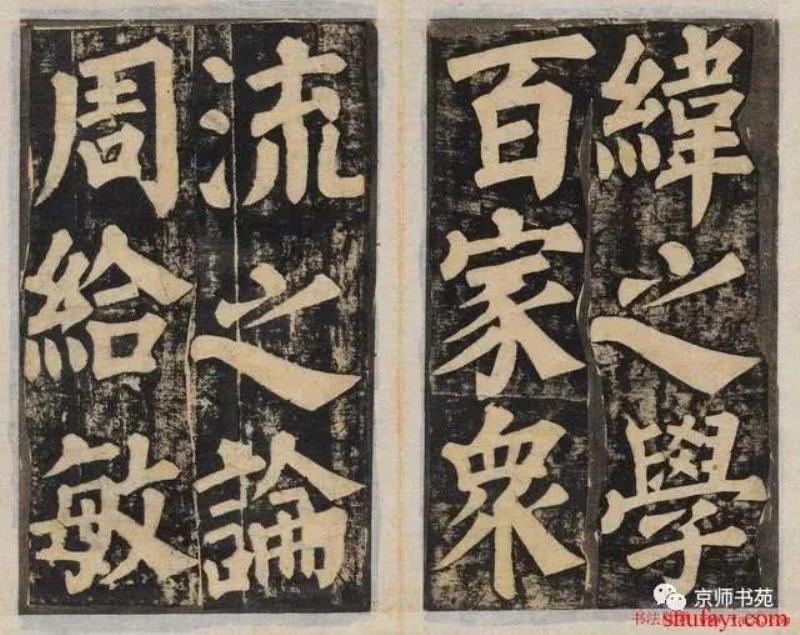 緯之學
百家衆
流之論
周給敏
京师书苑
shufayr.com